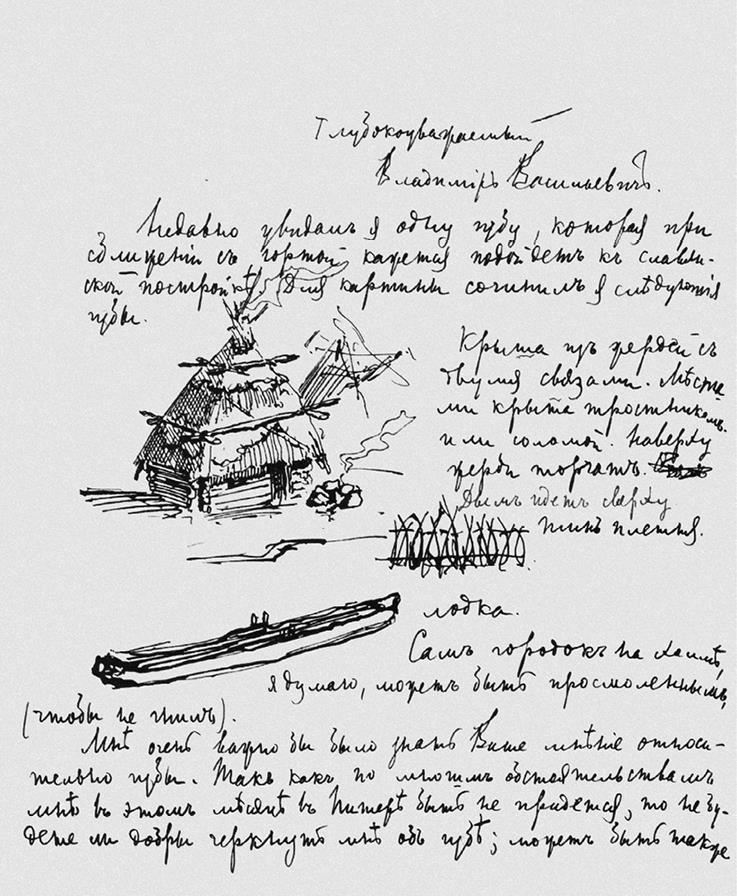 Глубокоуважаемый
Владиміръ Васильевичъ.
Недавно увидалъ я одну избу, которая при
сближеніи съ юртой кажется подойдетъ къ славян-
ской постройкѣ. Для картины сочинилъ я слѣдующія
избы.
Крыша изъ жердей съ
двумя связами. Мѣста
ми крыта тростникомъ
или соломой. Наверху
жерди торчатъ.
Дымъ идетъ сверху
типъ плетня.
лодка.
Самъ городокъ на холмѣ,
я думаю, можетъ быть просмоленнымъ,
(чтобы не гнилъ).
Мнѣ очень важно бы было знать Ваше мнѣніе относи-
тельно избы. Такъ какъ по многимъ обстоятельствамъ
мнѣ въ этомъ мѣсяцѣ въ Питерѣ быть не придется, то не бу-
дете ли добры черкнуть мнѣ объ избѣ; можетъ быть также